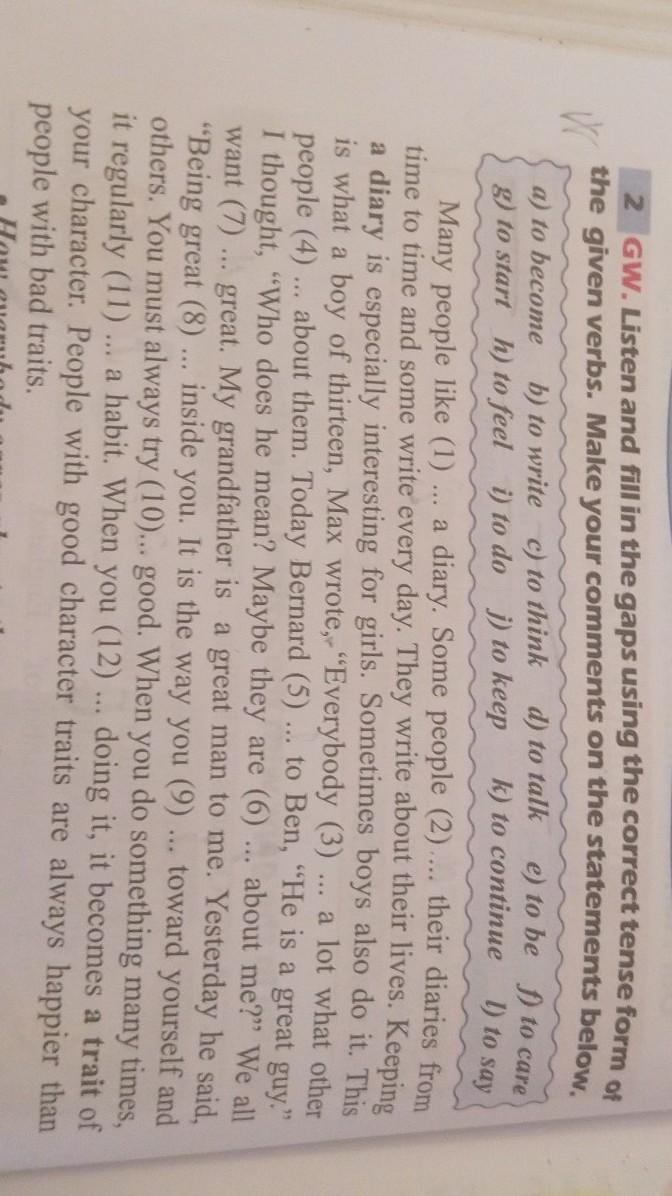 2 GW. Listen and fill in the gaps using the correct tense form of
the given verbs. Make your comments on the statements below.
a) to become b) to write c) to think d) to talk e) to be f) to care
g) to start h) to feel i) to do j) to keep k) to continue l) to say
Many people like (1) ... a diary. Some people (2) ... their diaries from
time to time and some write every day. They write about their lives. Keeping
a diary is especially interesting for girls. Sometimes boys also do it. This
is what a boy of thirteen, Max wrote, “Everybody (3) ... a lot what other
people (4) ... about them. Today Bernard (5) ... to Ben, “He is a great guy.”
I thought, “Who does he mean? Maybe they are (6) ... about me?” We all
want (7) ... great. My grandfather is a great man to me. Yesterday he said,
“Being great (8) ... inside you. It is the way you (9) ... toward yourself and
others. You must always try (10)... good. When you do something many times,
it regularly (11) ... a habit. When you (12) ... doing it, it becomes a trait of
your character. People with good character traits are always happier than
people with bad traits.
• How everybody